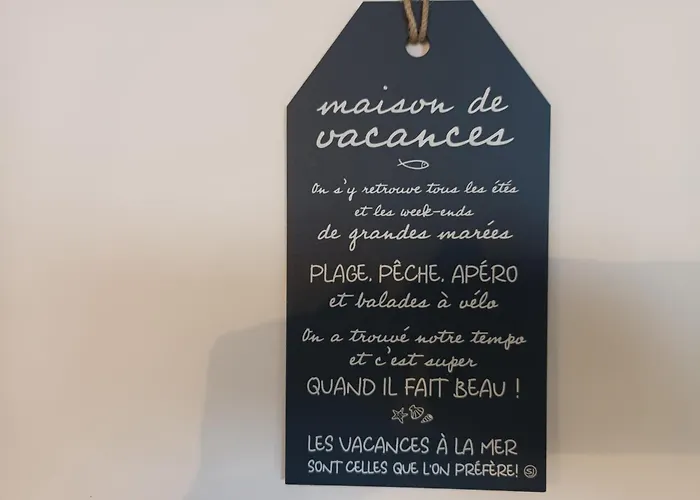 maison de
vacances
On s'y retrouve tous les étés
et les week-ends
de grandes marées
PLAGE, PÊCHE, APÉRO
et balades à vélo
On a trouvé notre tempo
et c'est super
QUAND IL FAIT BEAU !
LES VACANCES À LA MER
SONT CELLES QUE L'ON PRÉFÈRE!